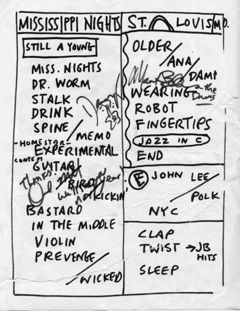 MISSISSIPPI NIGHTS
STILL A YOUNG
MISS. NIGHTS
DR. WORM
STALK
DRINK
SPINE / MEMO
HOMESTORE
EXPERIMENTAL
GUITAR
BIRD
KICKIN
BASTARD
IN THE MIDDLE
VIOLIN
PREVENGE / WICKED
ST. LOUIS MO.
OLDER / ANA / DAMP
WEARING
ROBOT
FINGERTIPS
JAZZ IN C
END
E JOHN LEE / POLK
NYC
CLAP
TWIST → JB
HITS
SLEEP